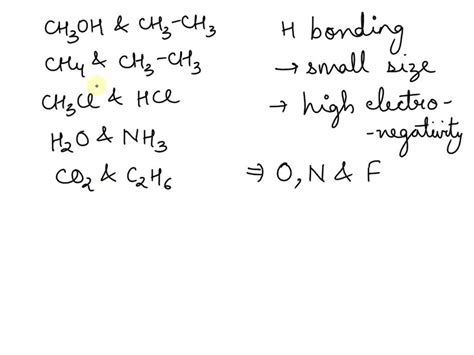 CH3OH & CH3-CH3
CH4 & CH3-CH3
CH3Cl & HCl
H2O & NH3
CO2 & C2H6
H bonding
→ small size
→ high electro-
-negativity
⇒ O, N & F